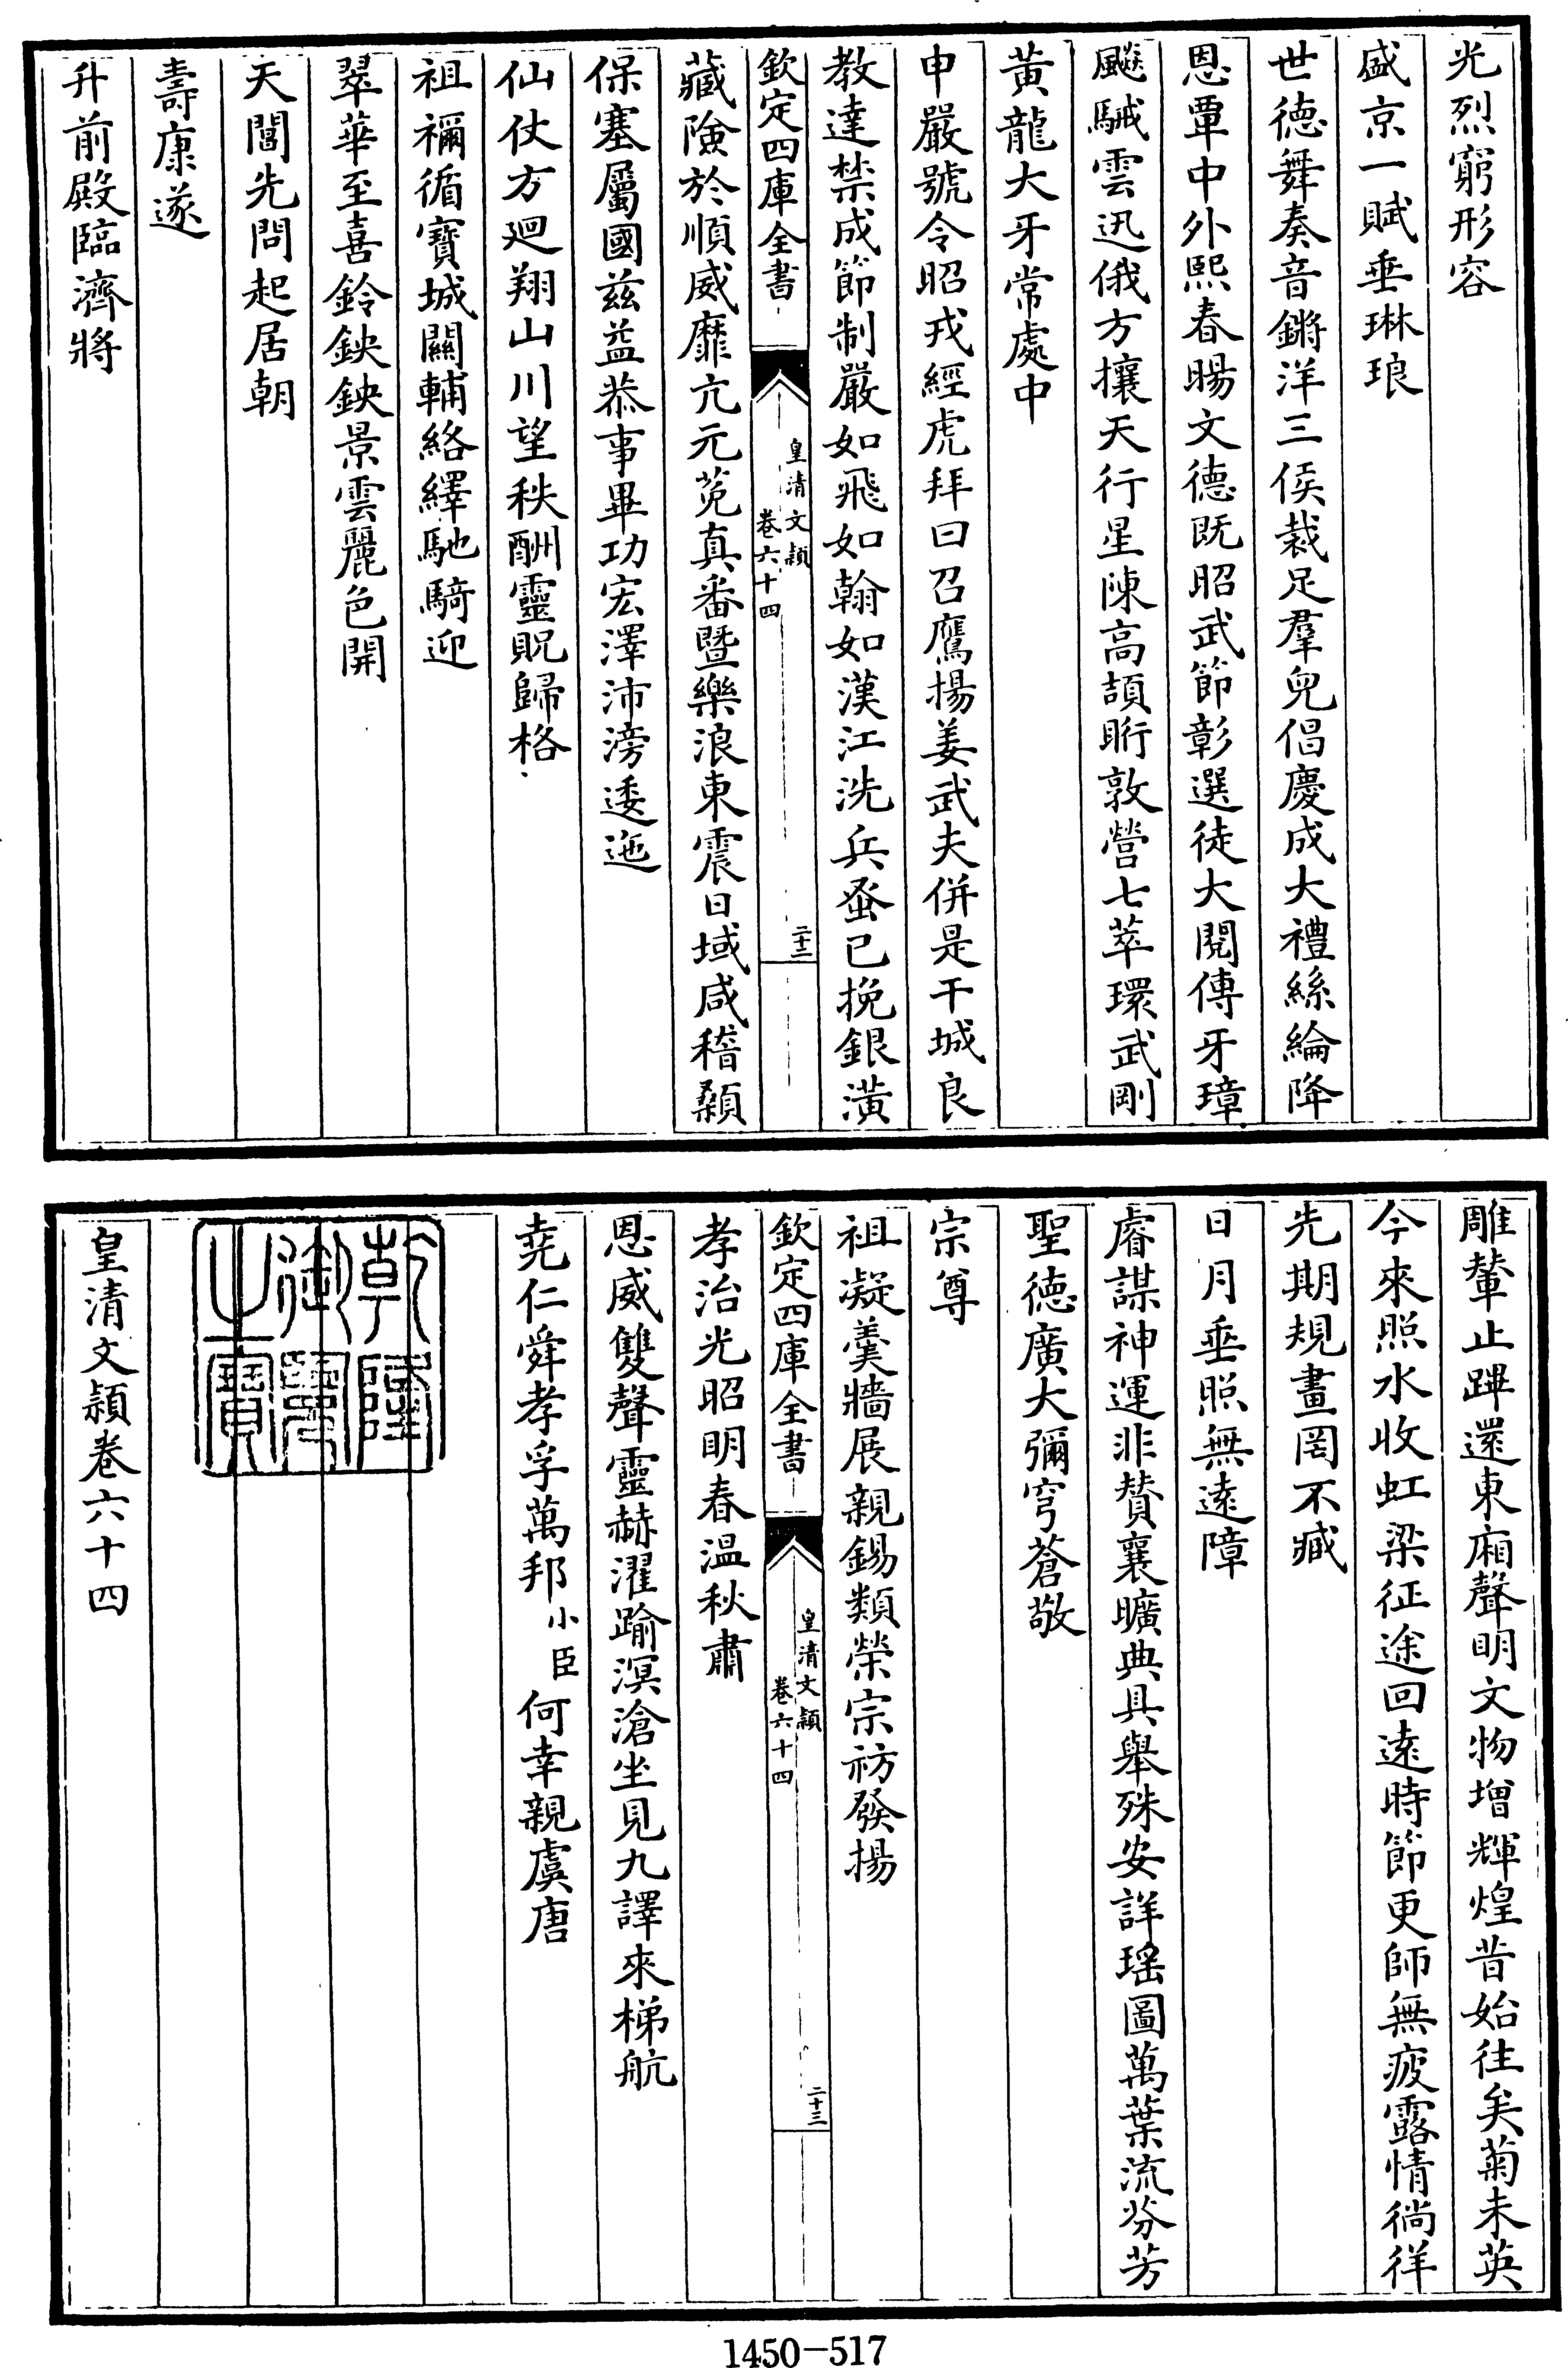 光烈窮形容
盛京一賦垂琳琅
世德舞奏音鏘洋三侯裁足羣兕倡慶成大禮絲綸降
恩覃中外熙春暘文德既昭武節彰選徒大閱傳牙璋
飈駴雲迅俄方攘天行星陳高頡䀪敦營七萃環武剛
黃龍大牙常處中
申嚴號令昭戎經虎拜曰召鷹揚姜武夫併是干城良
教達禁成節制嚴如飛如翰如漢江洗兵蚤已挽銀潢
欽定四庫全書
皇清文穎
卷六十四
二十二
藏險於順威靡亢元菟真番暨樂浪東震日域咸稽顙
保塞屬國茲益恭事畢功宏澤沛滂逶迤
仙仗方廻翔山川望秩酬靈貺歸格
祖禰循寶城關輔絡繹馳騎迎
翠華至喜鈴鉠鉠景雲麗色開
天閶先問起居朝
壽康遂
升前殿臨濟將
雕輦止蹕還東廂聲明文物增輝煌昔始往矣菊未英
今來照水收虹梁征途回遠時節更師無疲露情徜徉
先期規畫罔不臧
日月垂照無遠障
睿謀神運非贊襄曠典具舉殊安詳瑤圖萬葉流芬芳
聖德廣大彌穹蒼敬
宗尊
祖凝羹牆展親錫類榮宗祊發揚
欽定四庫全書
皇清文穎
卷六十四
二十三
孝治光昭明春温秋肅
恩威雙聲靈赫濯踰溟滄坐見九譯來梯航
堯仁舜孝孚萬邦小臣何幸親虞唐
乾隆御覽之寶
皇清文穎卷六十四
1450-517